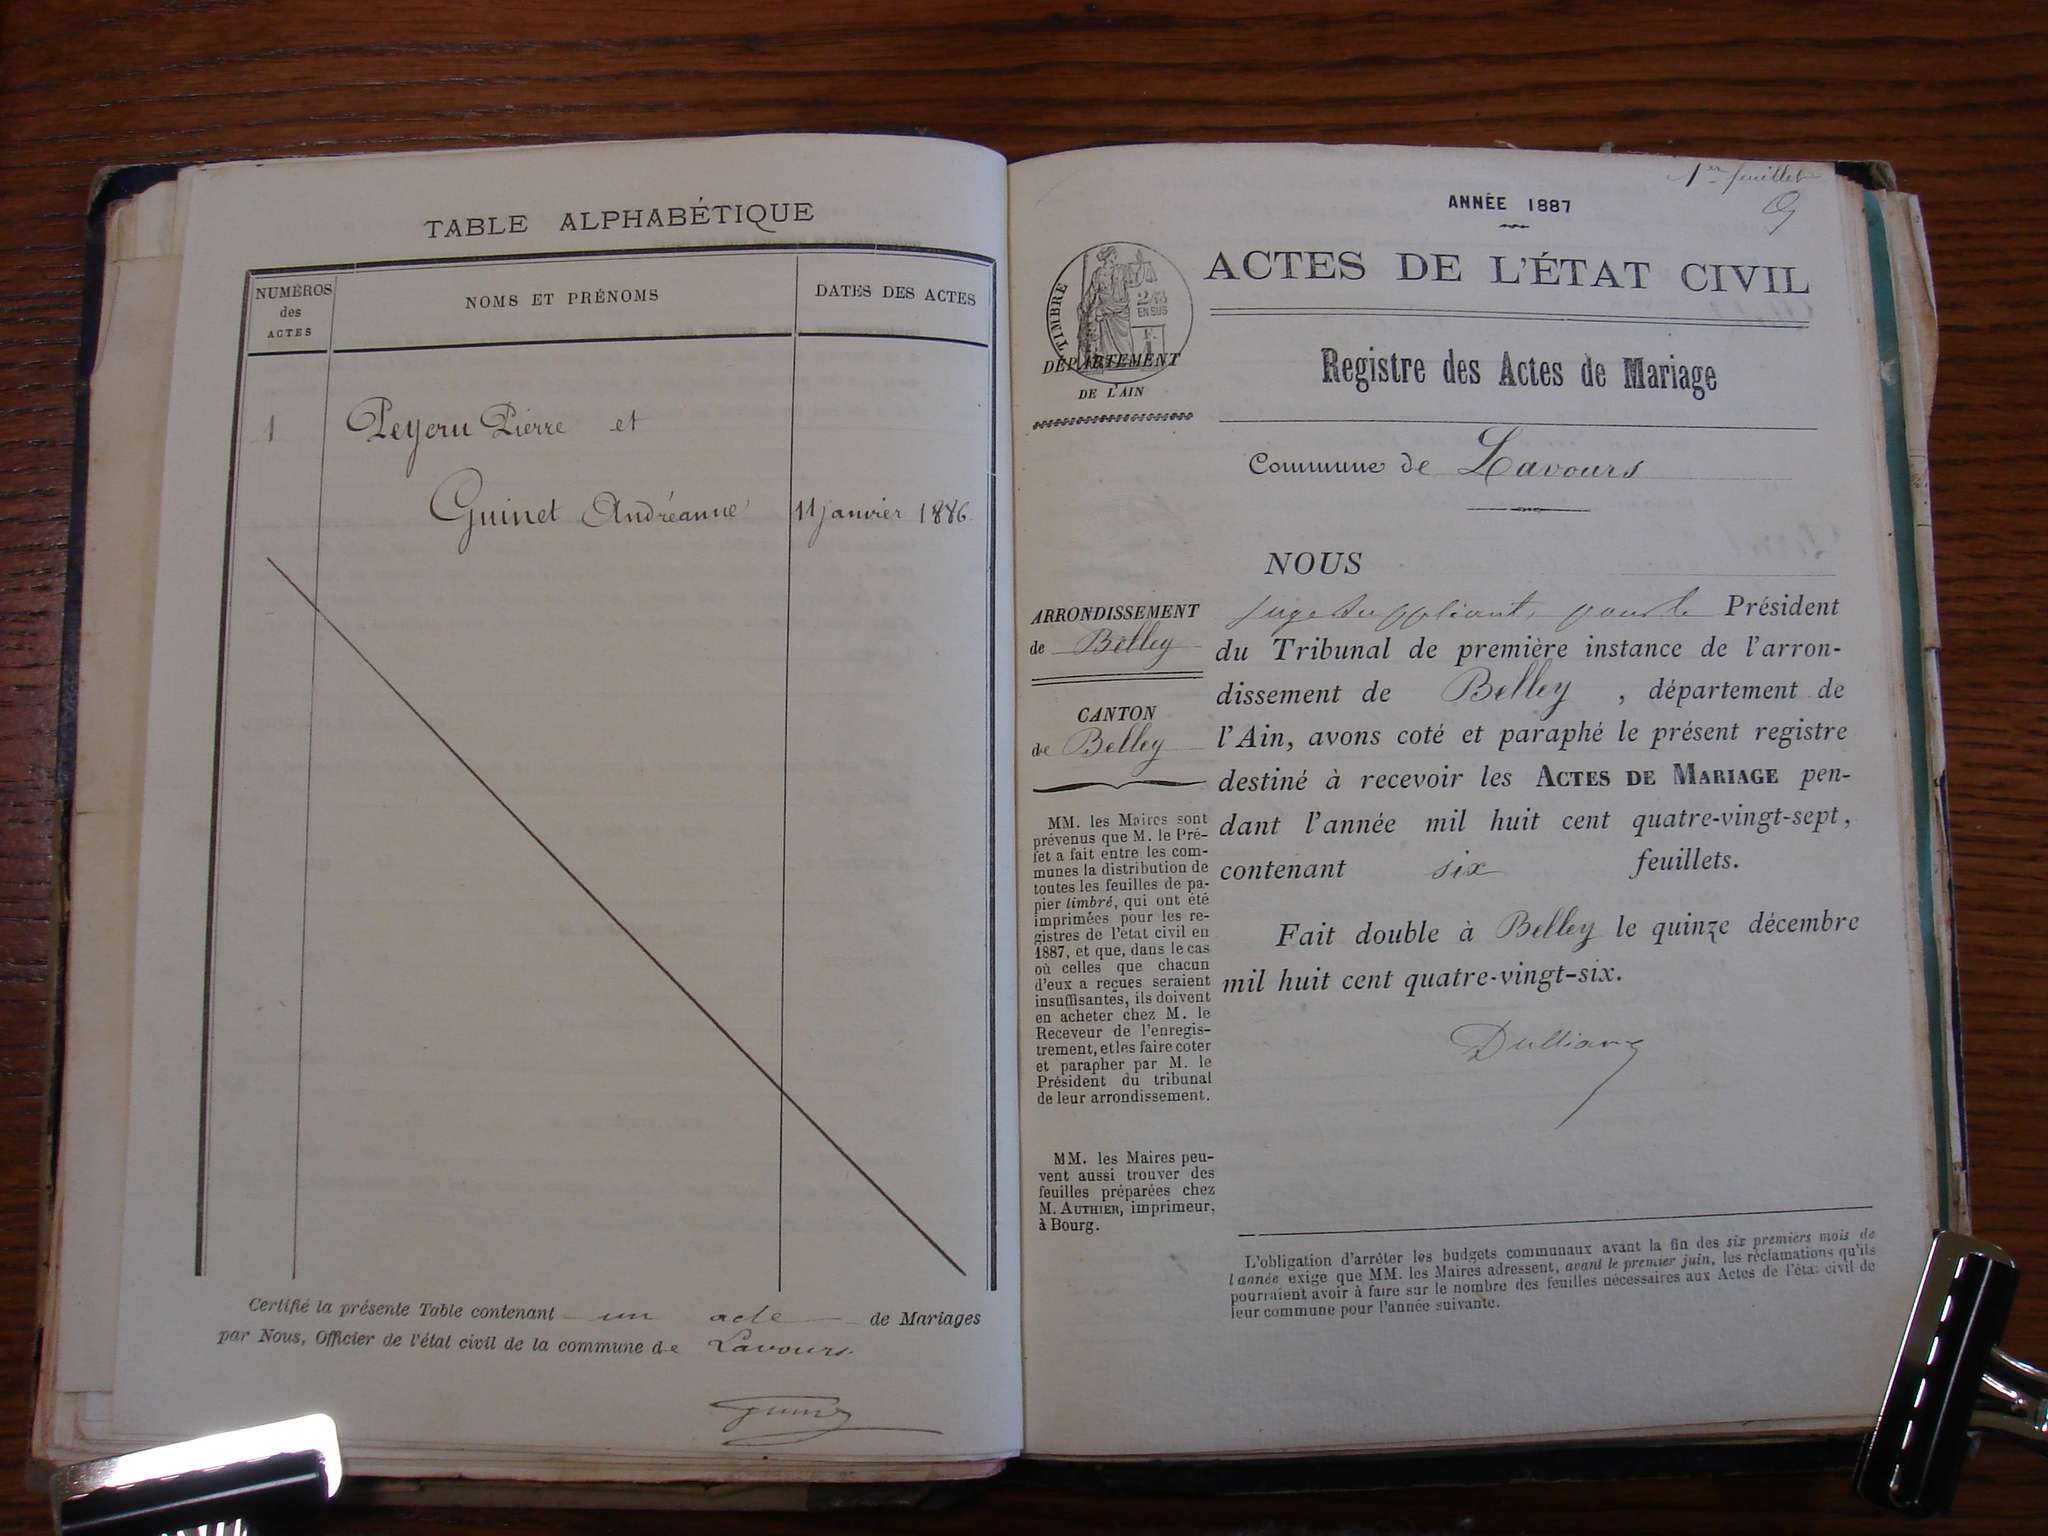 TABLE ALPHABÉTIQUE
NUMÉROS
des
ACTES
NOMS ET PRÉNOMS
DATES DES ACTES
1 Peycru Pierre et
Guinet Andréanne 11 janvier 1886
Certifié la présente Table contenant un acte de Mariages
par Nous, Officier de l'état civil de la commune de Lavours
1er feuillet
ANNÉE 1887
ACTES DE L'ÉTAT CIVIL
TIMBRE
2/10
EN SUS
DÉPARTEMENT
DE L'AIN
Registre des Actes de Mariage
Commune de Lavours
ARRONDISSEMENT
de Belley
CANTON
de Belley
MM. les Maires sont
prévenus que M. le Pré-
fet a fait entre les com-
munes la distribution de
toutes les feuilles de pa-
pier timbré, qui ont été
imprimées pour les re-
gistres de l'état civil en
1887, et que, dans le cas
où celles que chacun
d'eux a reçues seraient
insuffisantes, ils doivent
en acheter chez M. le
Receveur de l'enregis-
trement, et les faire coter
et parapher par M. le
Président du tribunal
de leur arrondissement.
MM. les Maires peu-
vent aussi trouver des
feuilles préparées chez
M. AUTHIER, imprimeur,
à Bourg.
NOUS
juge suppléant, pour le Président
du Tribunal de première instance de l'arron-
dissement de Belley, département de
l'Ain, avons coté et paraphé le présent registre
destiné à recevoir les ACTES DE MARIAGE pen-
dant l'année mil huit cent quatre-vingt-sept,
contenant six feuillets.
Fait double à Belley le quinze décembre
mil huit cent quatre-vingt-six.
L'obligation d'arrêter les budgets communaux avant la fin des six premiers mois de
l'année exige que MM. les Maires adressent, avant le premier juin, les réclamations qu'ils
pourraient avoir à faire sur le nombre des feuilles nécessaires aux Actes de l'état civil de
leur commune pour l'année suivante.